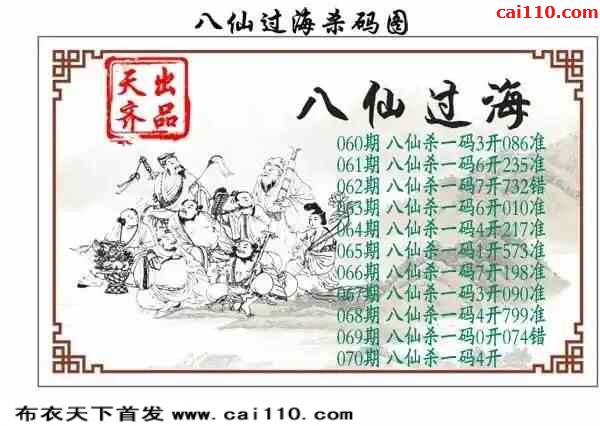 八仙过海杀码图
cai110.com
天齐
出品
八仙过海
060期 八仙杀一码3开086准
061期 八仙杀一码6开235准
062期 八仙杀一码7开732错
063期 八仙杀一码6开010准
064期 八仙杀一码4开217准
065期 八仙杀一码1开573准
066期 八仙杀一码7开198准
067期 八仙杀一码3开090准
068期 八仙杀一码4开799准
069期 八仙杀一码0开074错
070期 八仙杀一码4开
布衣天下首发 www.cai110.com